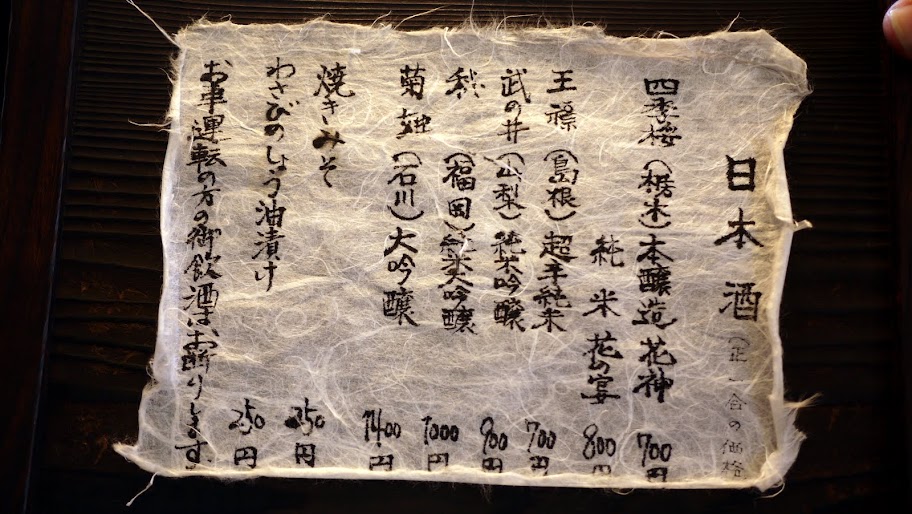 日本酒（正一合の価格）
四季桜（栃木）本醸造 花神 700円
純米 花の宴 800円
王祿（島根）超辛純米 700円
武の井（山梨）純米吟醸 900円
（福岡）純米大吟醸 1000円
菊姫（石川）大吟醸 1400円
焼きみそ 350円
わさびのしょう油漬け 250円
お車運転の方の御飲酒はお断りします